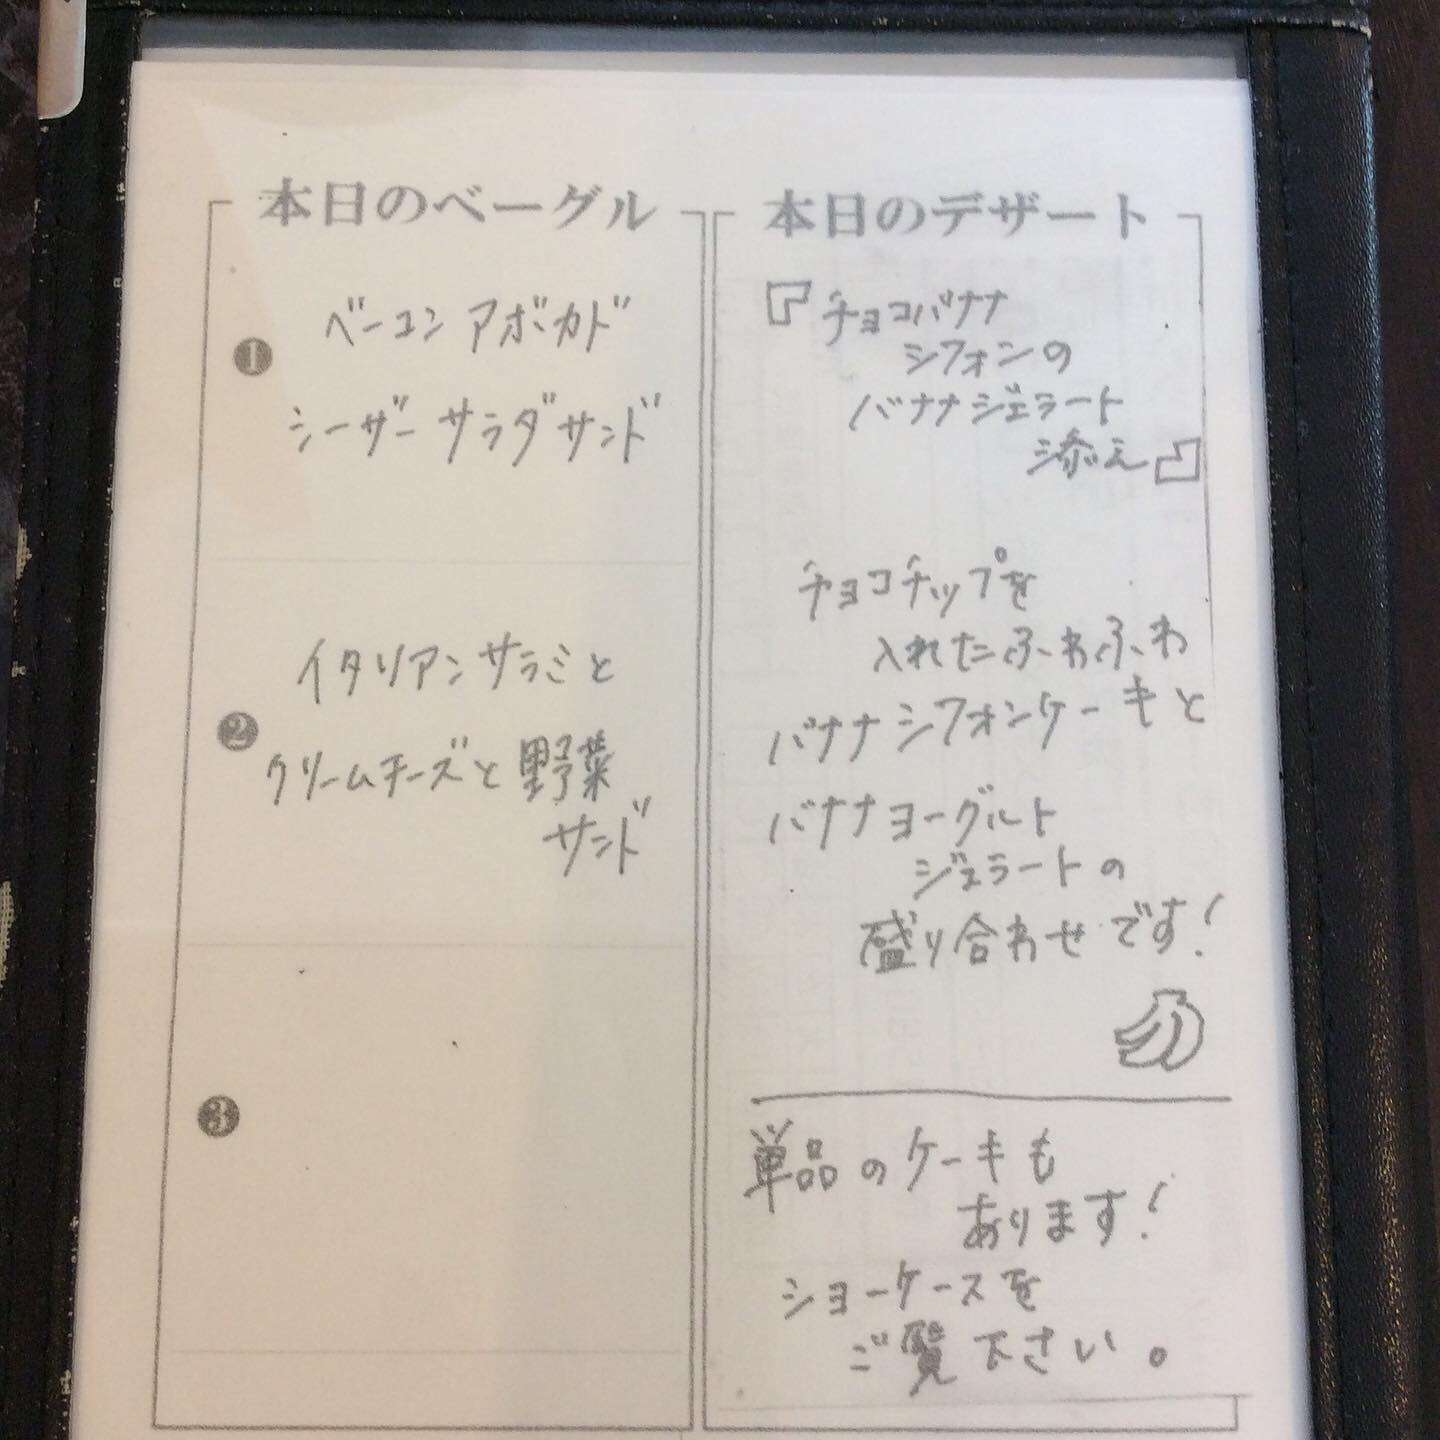 本日のベーグル
❶
ベーコンアボカド
シーザーサラダサンド
❷
イタリアンサラミと
クリームチーズと野菜
サンド
❸
本日のデザート
『チョコバナナ
シフォンの
バナナジェラート
添え』
チョコチップを
入れたふわふわ
バナナシフォンケーキと
バナナヨーグルト
ジェラートの
盛り合わせです!
単品のケーキも
あります!
ショーケースを
ご覧下さい。